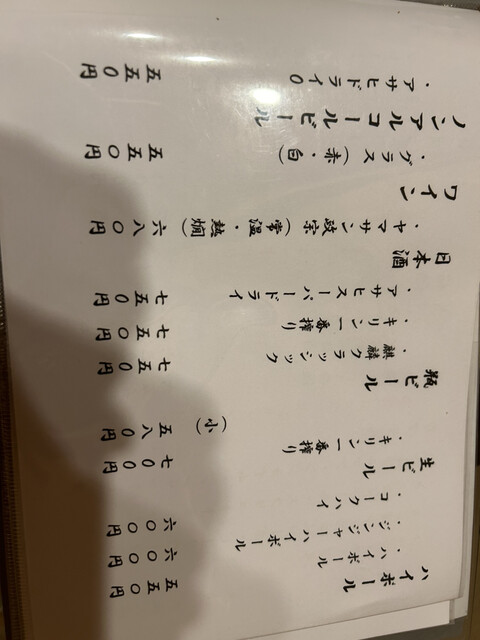 ハイボール
・ハイボール 五五〇円
・ジンジャーハイボール 六〇〇円
・コークハイ 六〇〇円
生ビール
・キリン一番搾り 七〇〇円
(小) 五八〇円
瓶ビール
・麒麟クラッシック 七五〇円
・キリン一番搾り 七五〇円
・アサヒスーパードライ 七五〇円
日本酒
・ヤマサン政宗(常温・熱燗) 六八〇円
ワイン
・グラス(赤・白) 五五〇円
ノンアルコールビール
・アサヒドライ〇 五五〇円